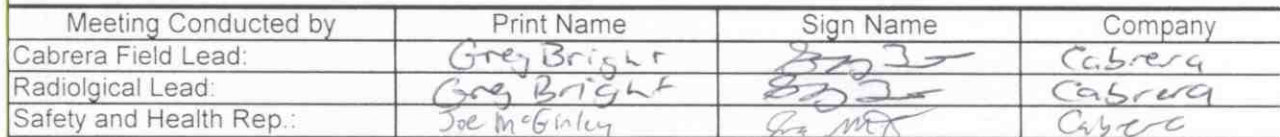 Meeting Conducted by Print Name Sign Name Company
Cabrera Field Lead: Greg Bright Cabrera
Radiolgical Lead: Greg Bright Cabrera
Safety and Health Rep.: Joe McGinley Cabrera